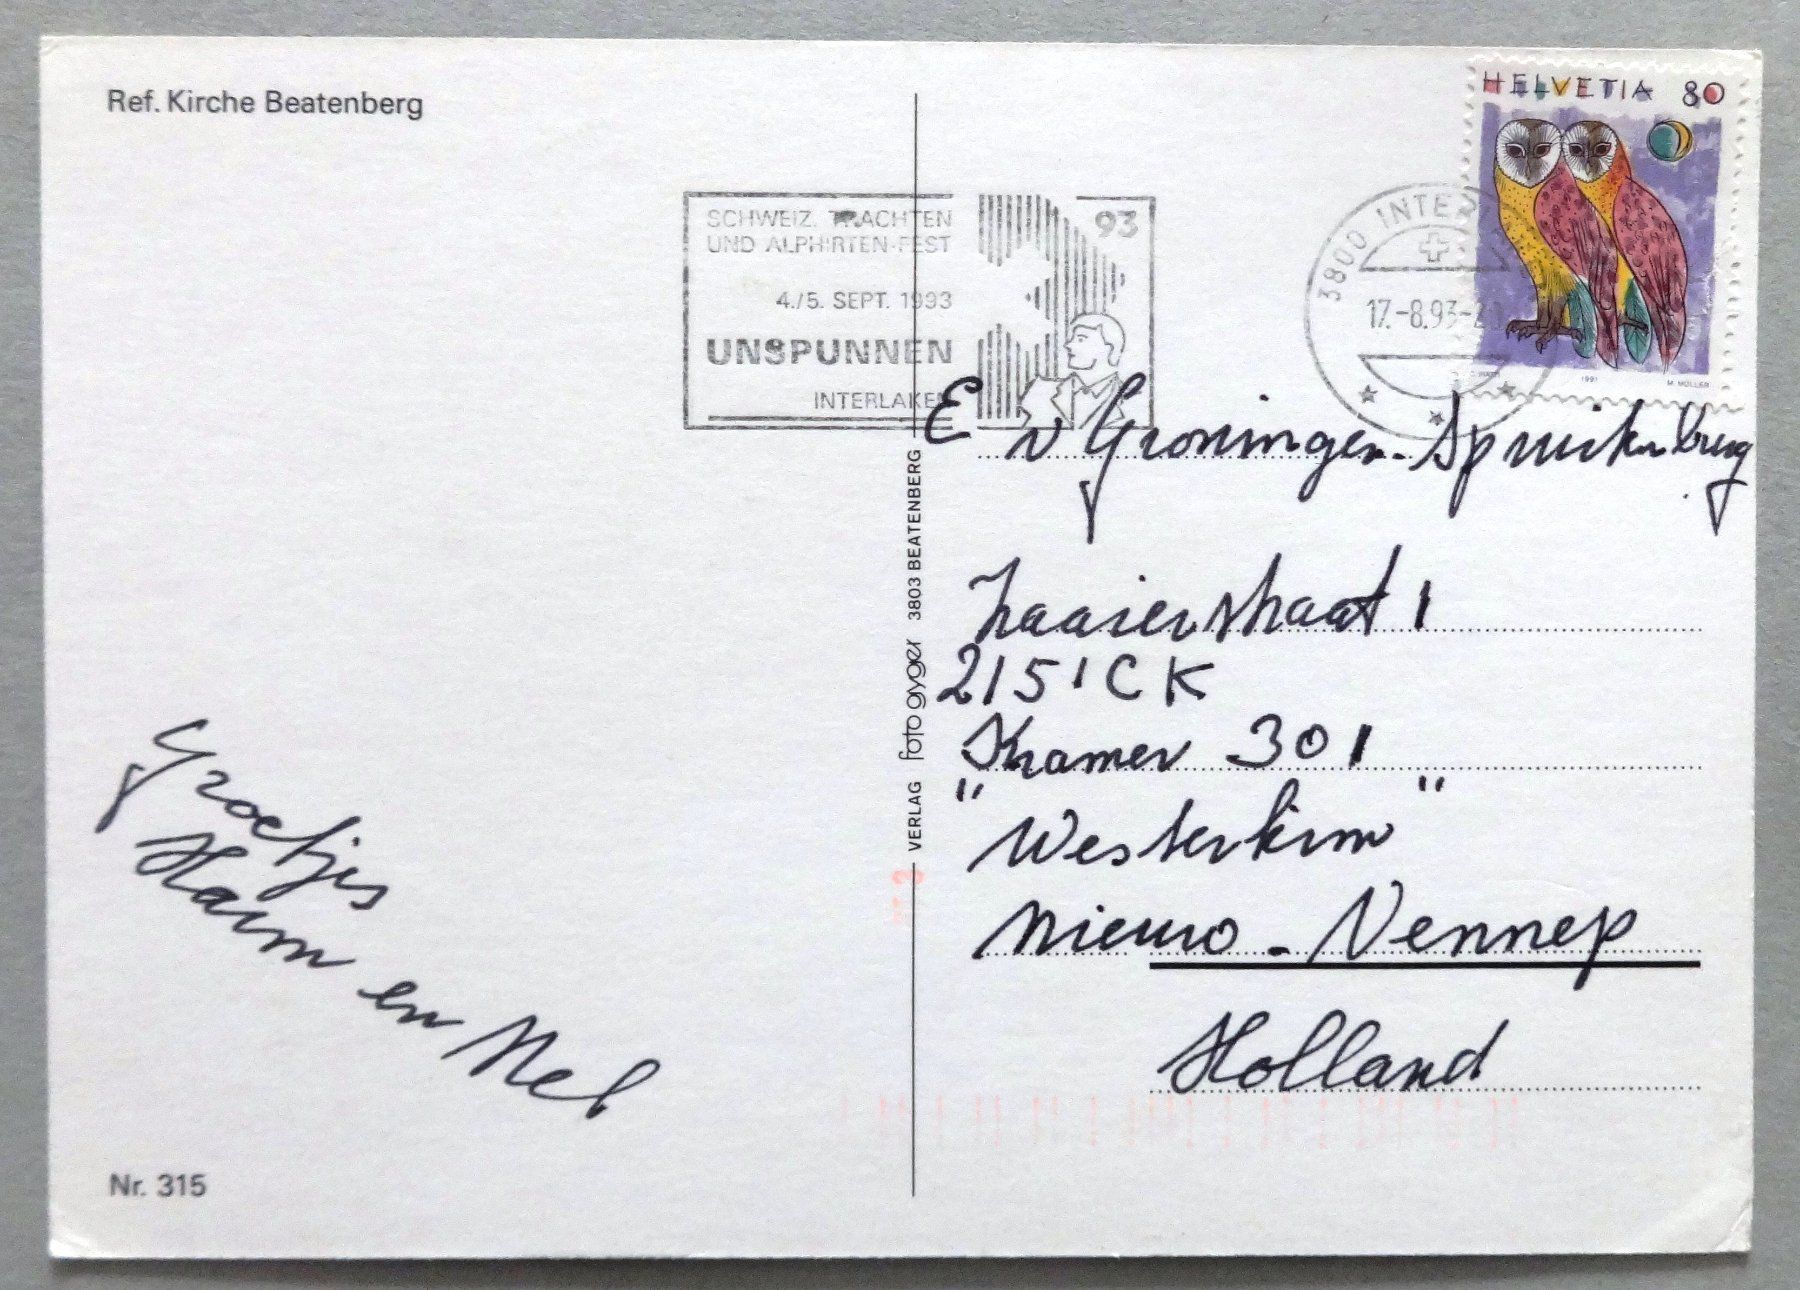 Ref. Kirche Beatenberg
HELVETIA 80
SCHWEIZ. TRACHTEN
UND ALPHIRTEN-FEST
4./5. SEPT. 1993
UNSPUNNEN
INTERLAKEN
93
3800 INTER
17.-8.93-20
1991
M. MÜLLER
E v Groningen-Spruitenburg
Zaaierstraat 1
2151CK
Kramer 301
"Westerkim"
Nieuw-Vennep
Holland
Groetjes
Harm en Nel
VERLAG foto gyger 3803 BEATENBERG
Nr. 315